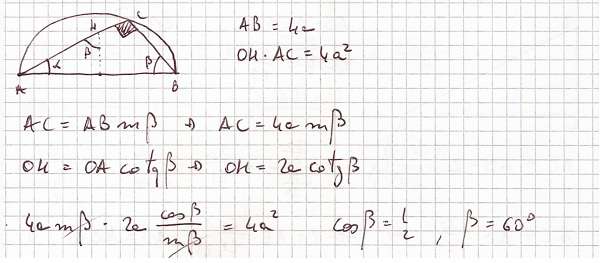 C
H
AB = 4a
β
α
β
OH · AC = 4a²
A
B
AC = AB sin β → AC = 4a sin β
OH = OA cotg β → OH = 2a cotg β
4a sin β · 2a cos β / sin β = 4a²   cos β = 1/2 , β = 60°